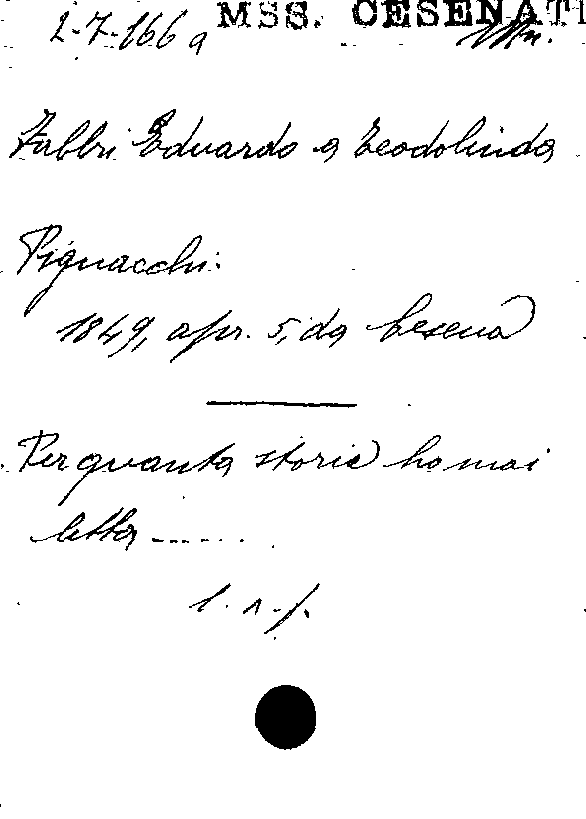 MSS. CESENATI
2-7-166a
Fabbri Eduardo a Teodolinda
Pignacchi:
1849, apr. 5, da Cesena
Per quanta storia ho mai
letta ......
l. a. f.